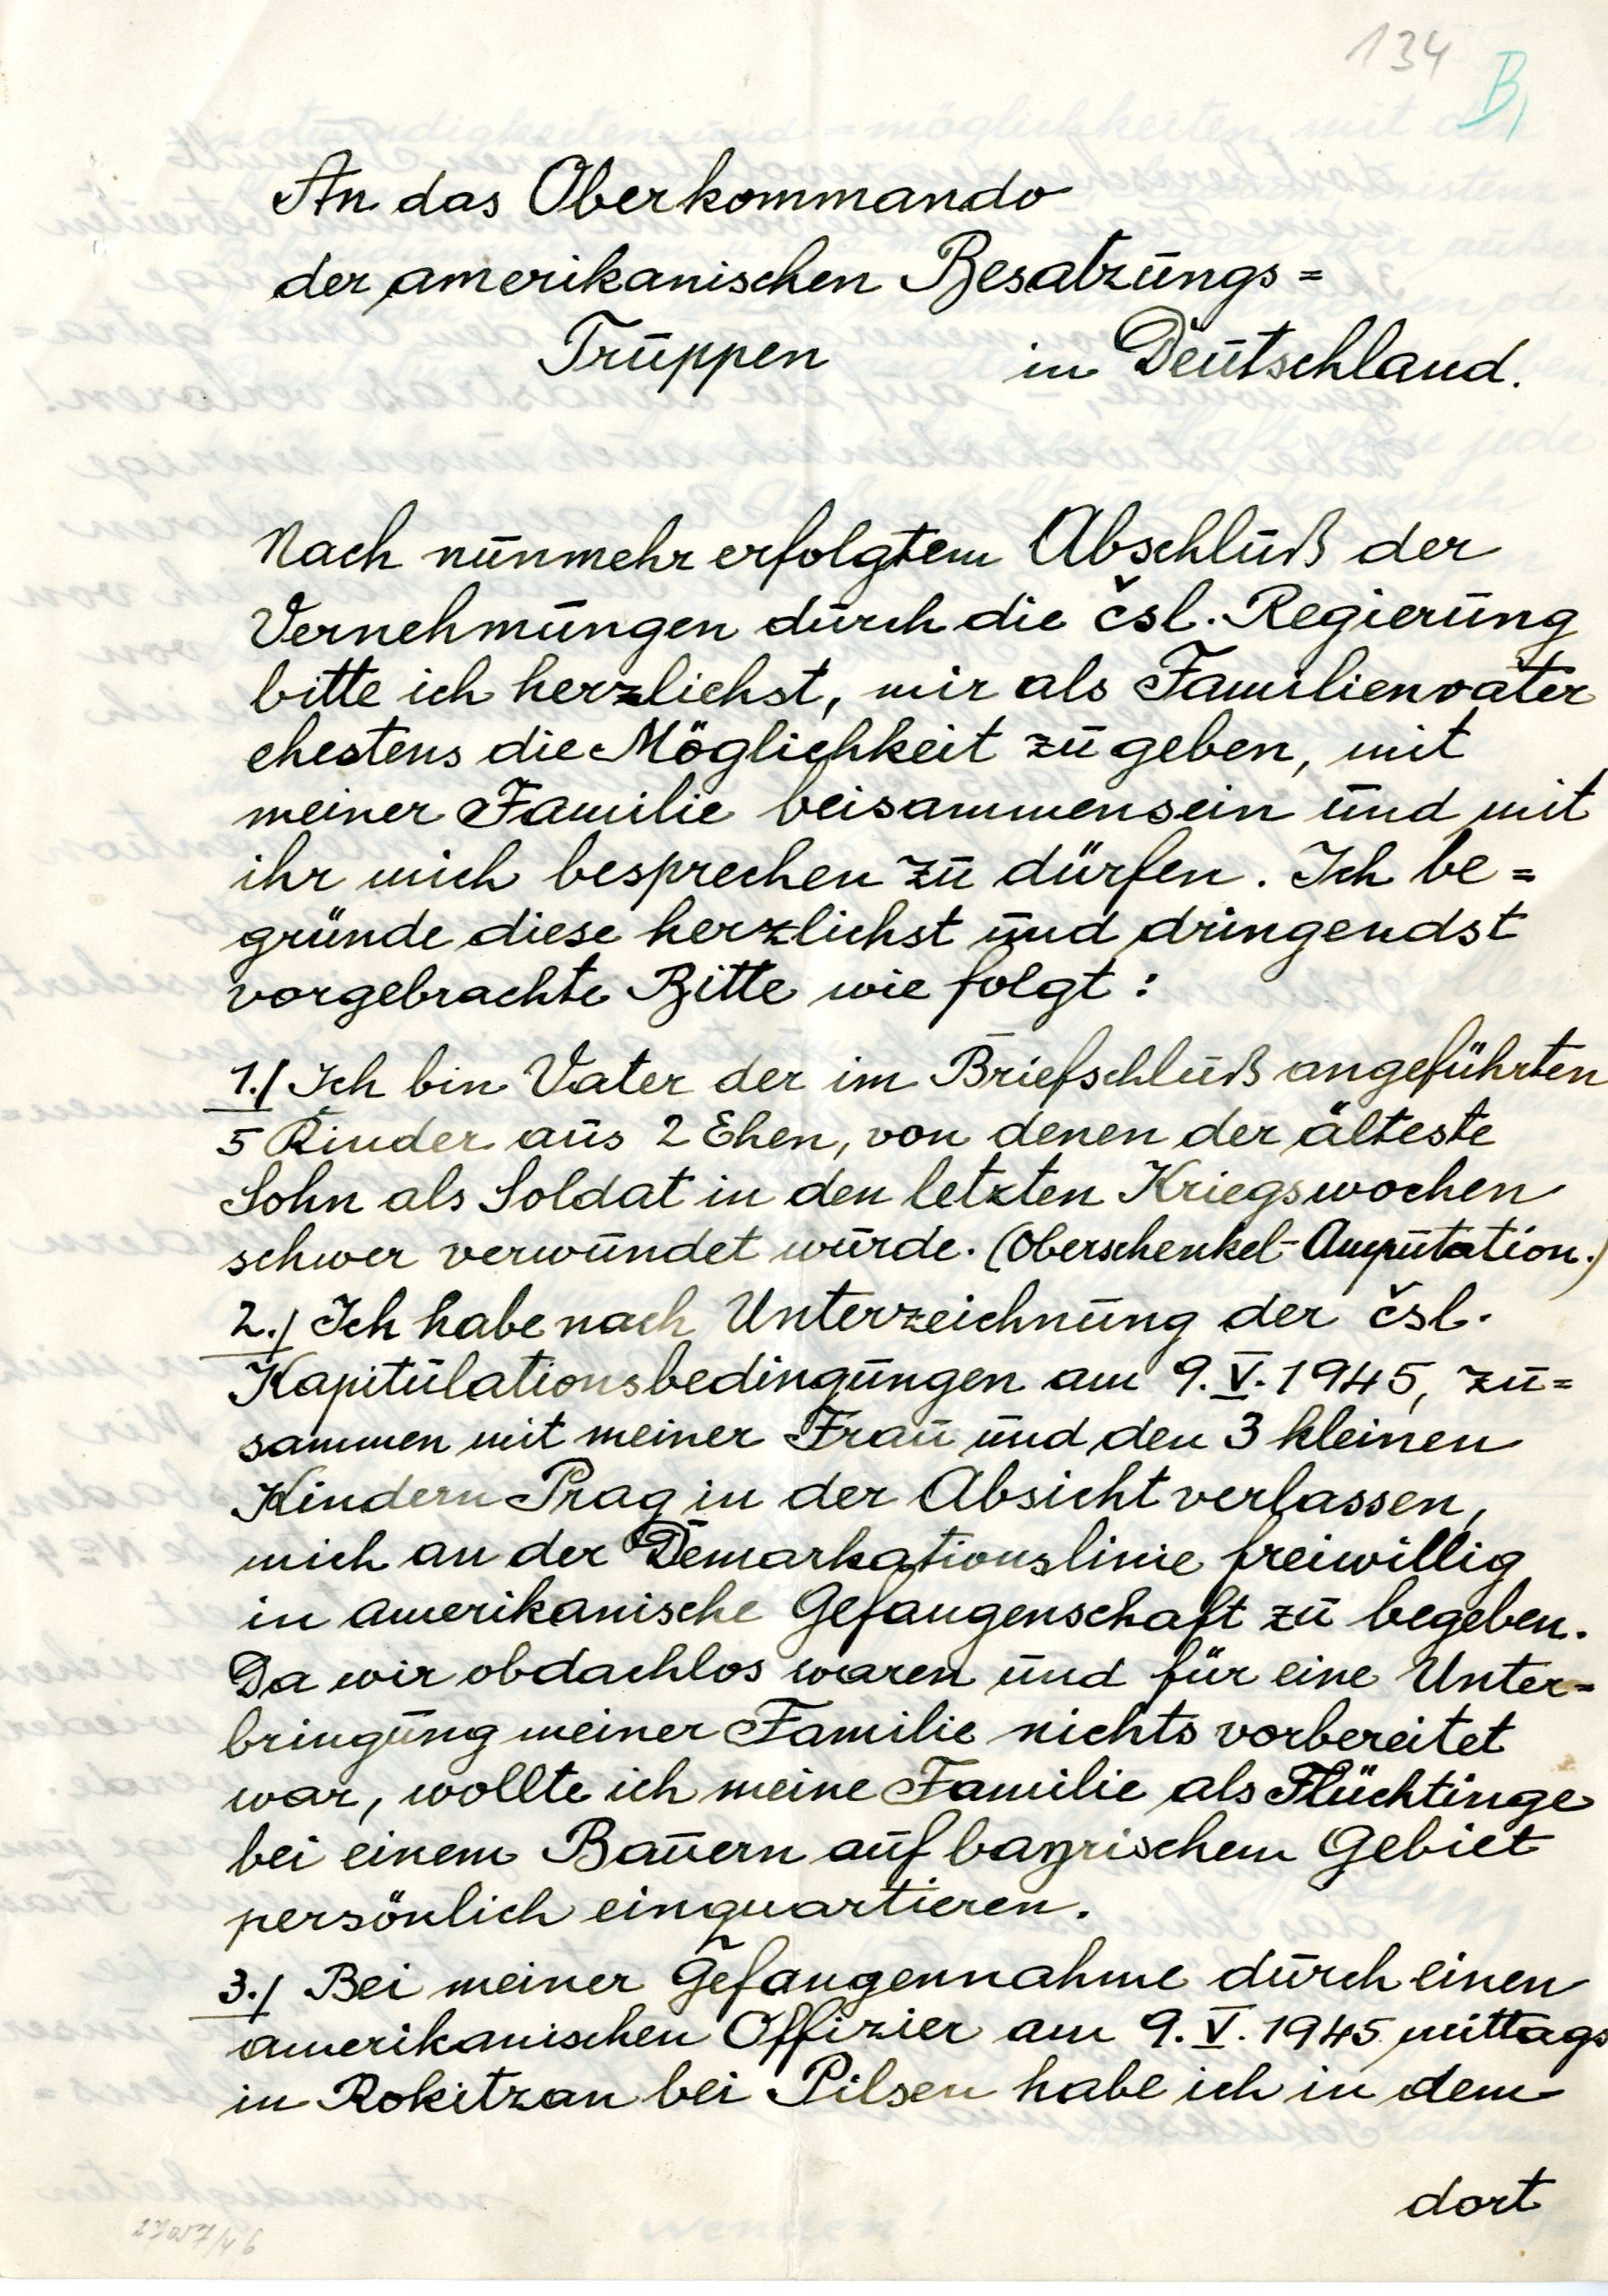 134
B,
An das Oberkommando
der amerikanischen Besatzungs=
Truppen in Deutschland.
Nach nunmehr erfolgtem Abschluß der
Vernehmungen durch die čsl. Regierung
bitte ich herzlichst, mir als Familienvater
ehestens die Möglichkeit zu geben, mit
meiner Familie beisammensein und mit
ihr mich besprechen zu dürfen. Ich be=
gründe diese herzlichst und dringendst
vorgebrachte Bitte wie folgt:
1./ Ich bin Vater der im Briefschluß angeführten
5 Kinder aus 2 Ehen, von denen der älteste
Sohn als Soldat in den letzten Kriegswochen
schwer verwundet wurde. (Oberschenkel-Amputation.)
2./ Ich habe nach Unterzeichnung der čsl.
Kapitulationsbedingungen am 9. V. 1945, zu=
sammen mit meiner Frau und den 3 kleinen
Kindern Prag in der Absicht verlassen,
mich an der Demarkationslinie freiwillig
in amerikanische Gefangenschaft zu begeben.
Da wir obdachlos waren und für eine Unter=
bringung meiner Familie nichts vorbereitet
war, wollte ich meine Familie als Flüchtinge
bei einem Bauern auf bayrischem Gebiet
persönlich einquartieren.
3./ Bei meiner Gefangennahme durch einen
amerikanischen Offizier am 9. V. 1945 mittags
in Rokitzan bei Pilsen habe ich in dem
dort
wenden!